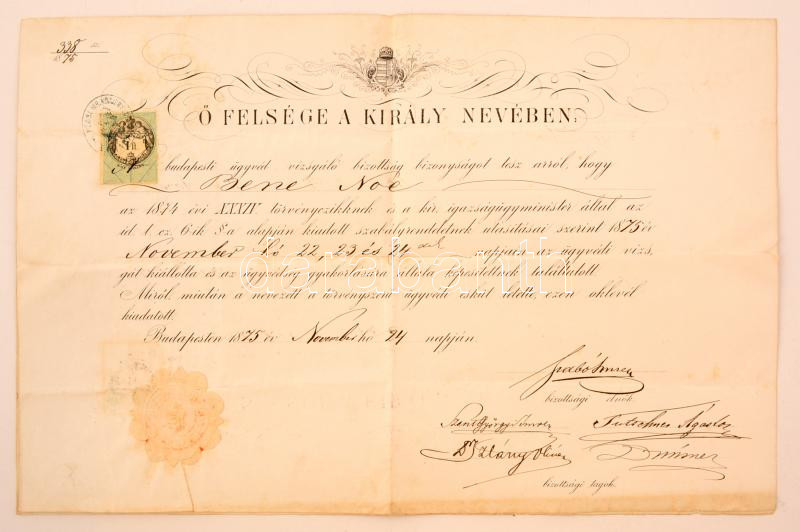 338
1875
Ő FELSÉGE A KIRÁLY NEVÉBEN.
1 ft
A budapesti ügyvéd vizsgáló bizottság bizonyságot tesz arról, hogy
Bene Noe
az 1874 évi XXXIV. törvényczikknek és a kir. igazságügyminister által az
id. t. cz. 6.ik §-a alapján kiadott szabályrendeletnek utasításai szerint 1875 év
November hó 22, 23 és 24 napjain az ügyvédi vizs,
gát kiállotta és az ügyvédség gyakorlására általa képesitettnek találtatott
Miről, miután a nevezett a törvényszerű ügyvédi esküt letette, ezen oklevél
kiadatott.
Budapesten 1875 év November hó 24 napján.
darabanth
Szabó Imre
bizottsági elnök.
Szentgyörgyi Imre
Ágoston
Dr Szlány
bizottsági tagok.